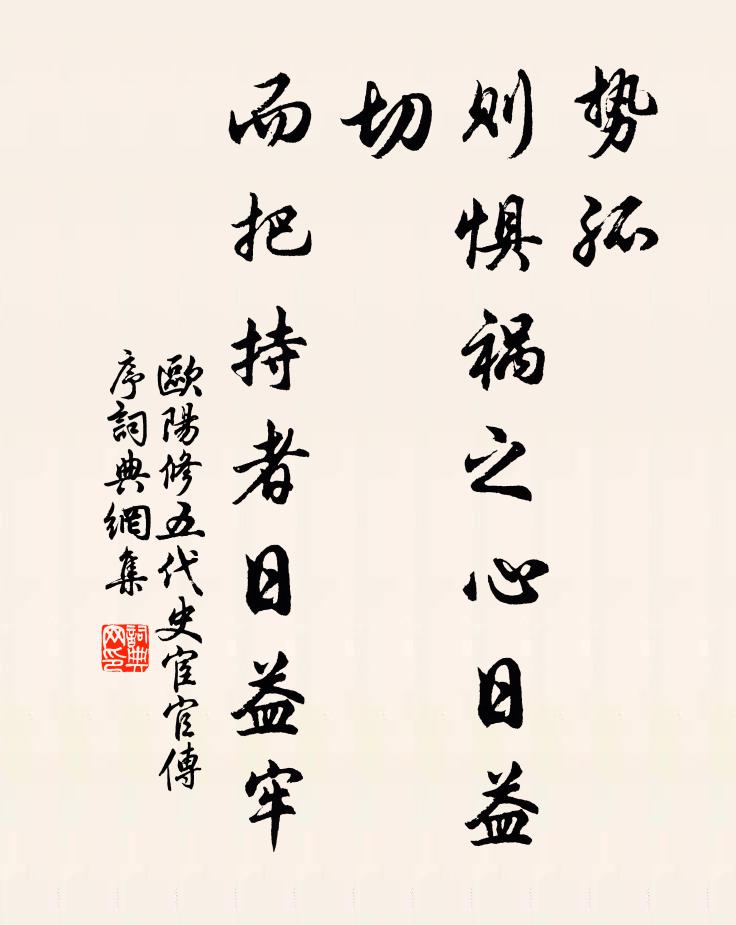 势孤
则惧祸之心日益
切
而把持者日益牢
歐陽修五代史宦官傳
序詞典網集
詞典
网印